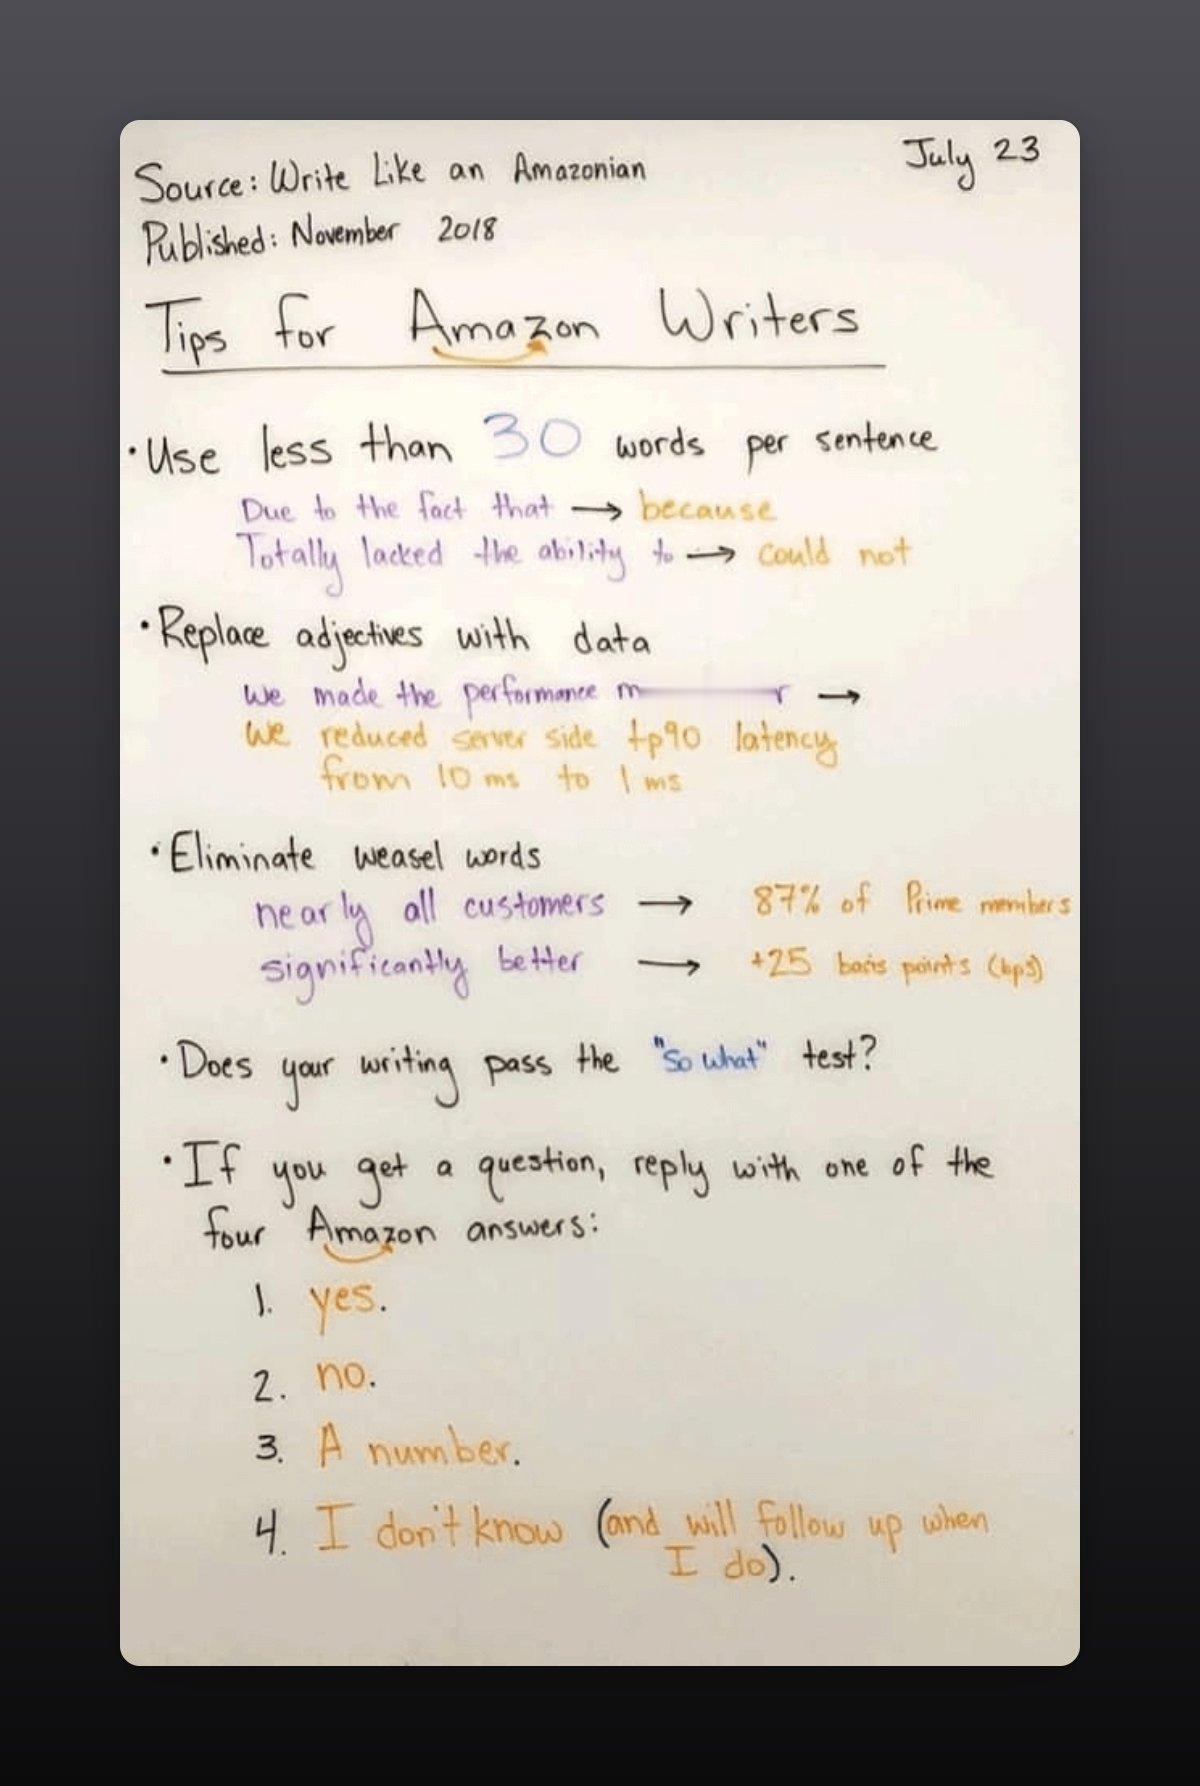 Source: Write Like an Amazonian
July 23
Published: November 2018
Tips for Amazon Writers
• Use less than 30 words per sentence
Due to the fact that → because
Totally lacked the ability to → could not
• Replace adjectives with data
We made the performance →
We reduced server side tp90 latency
from 10 ms to 1 ms
• Eliminate weasel words
nearly all customers → 87% of Prime members
significantly better → +25 basis points (bps)
• Does your writing pass the "So what" test?
• If you get a question, reply with one of the
four Amazon answers:
1. yes.
2. no.
3. A number.
4. I don't know (and will follow up when
I do).